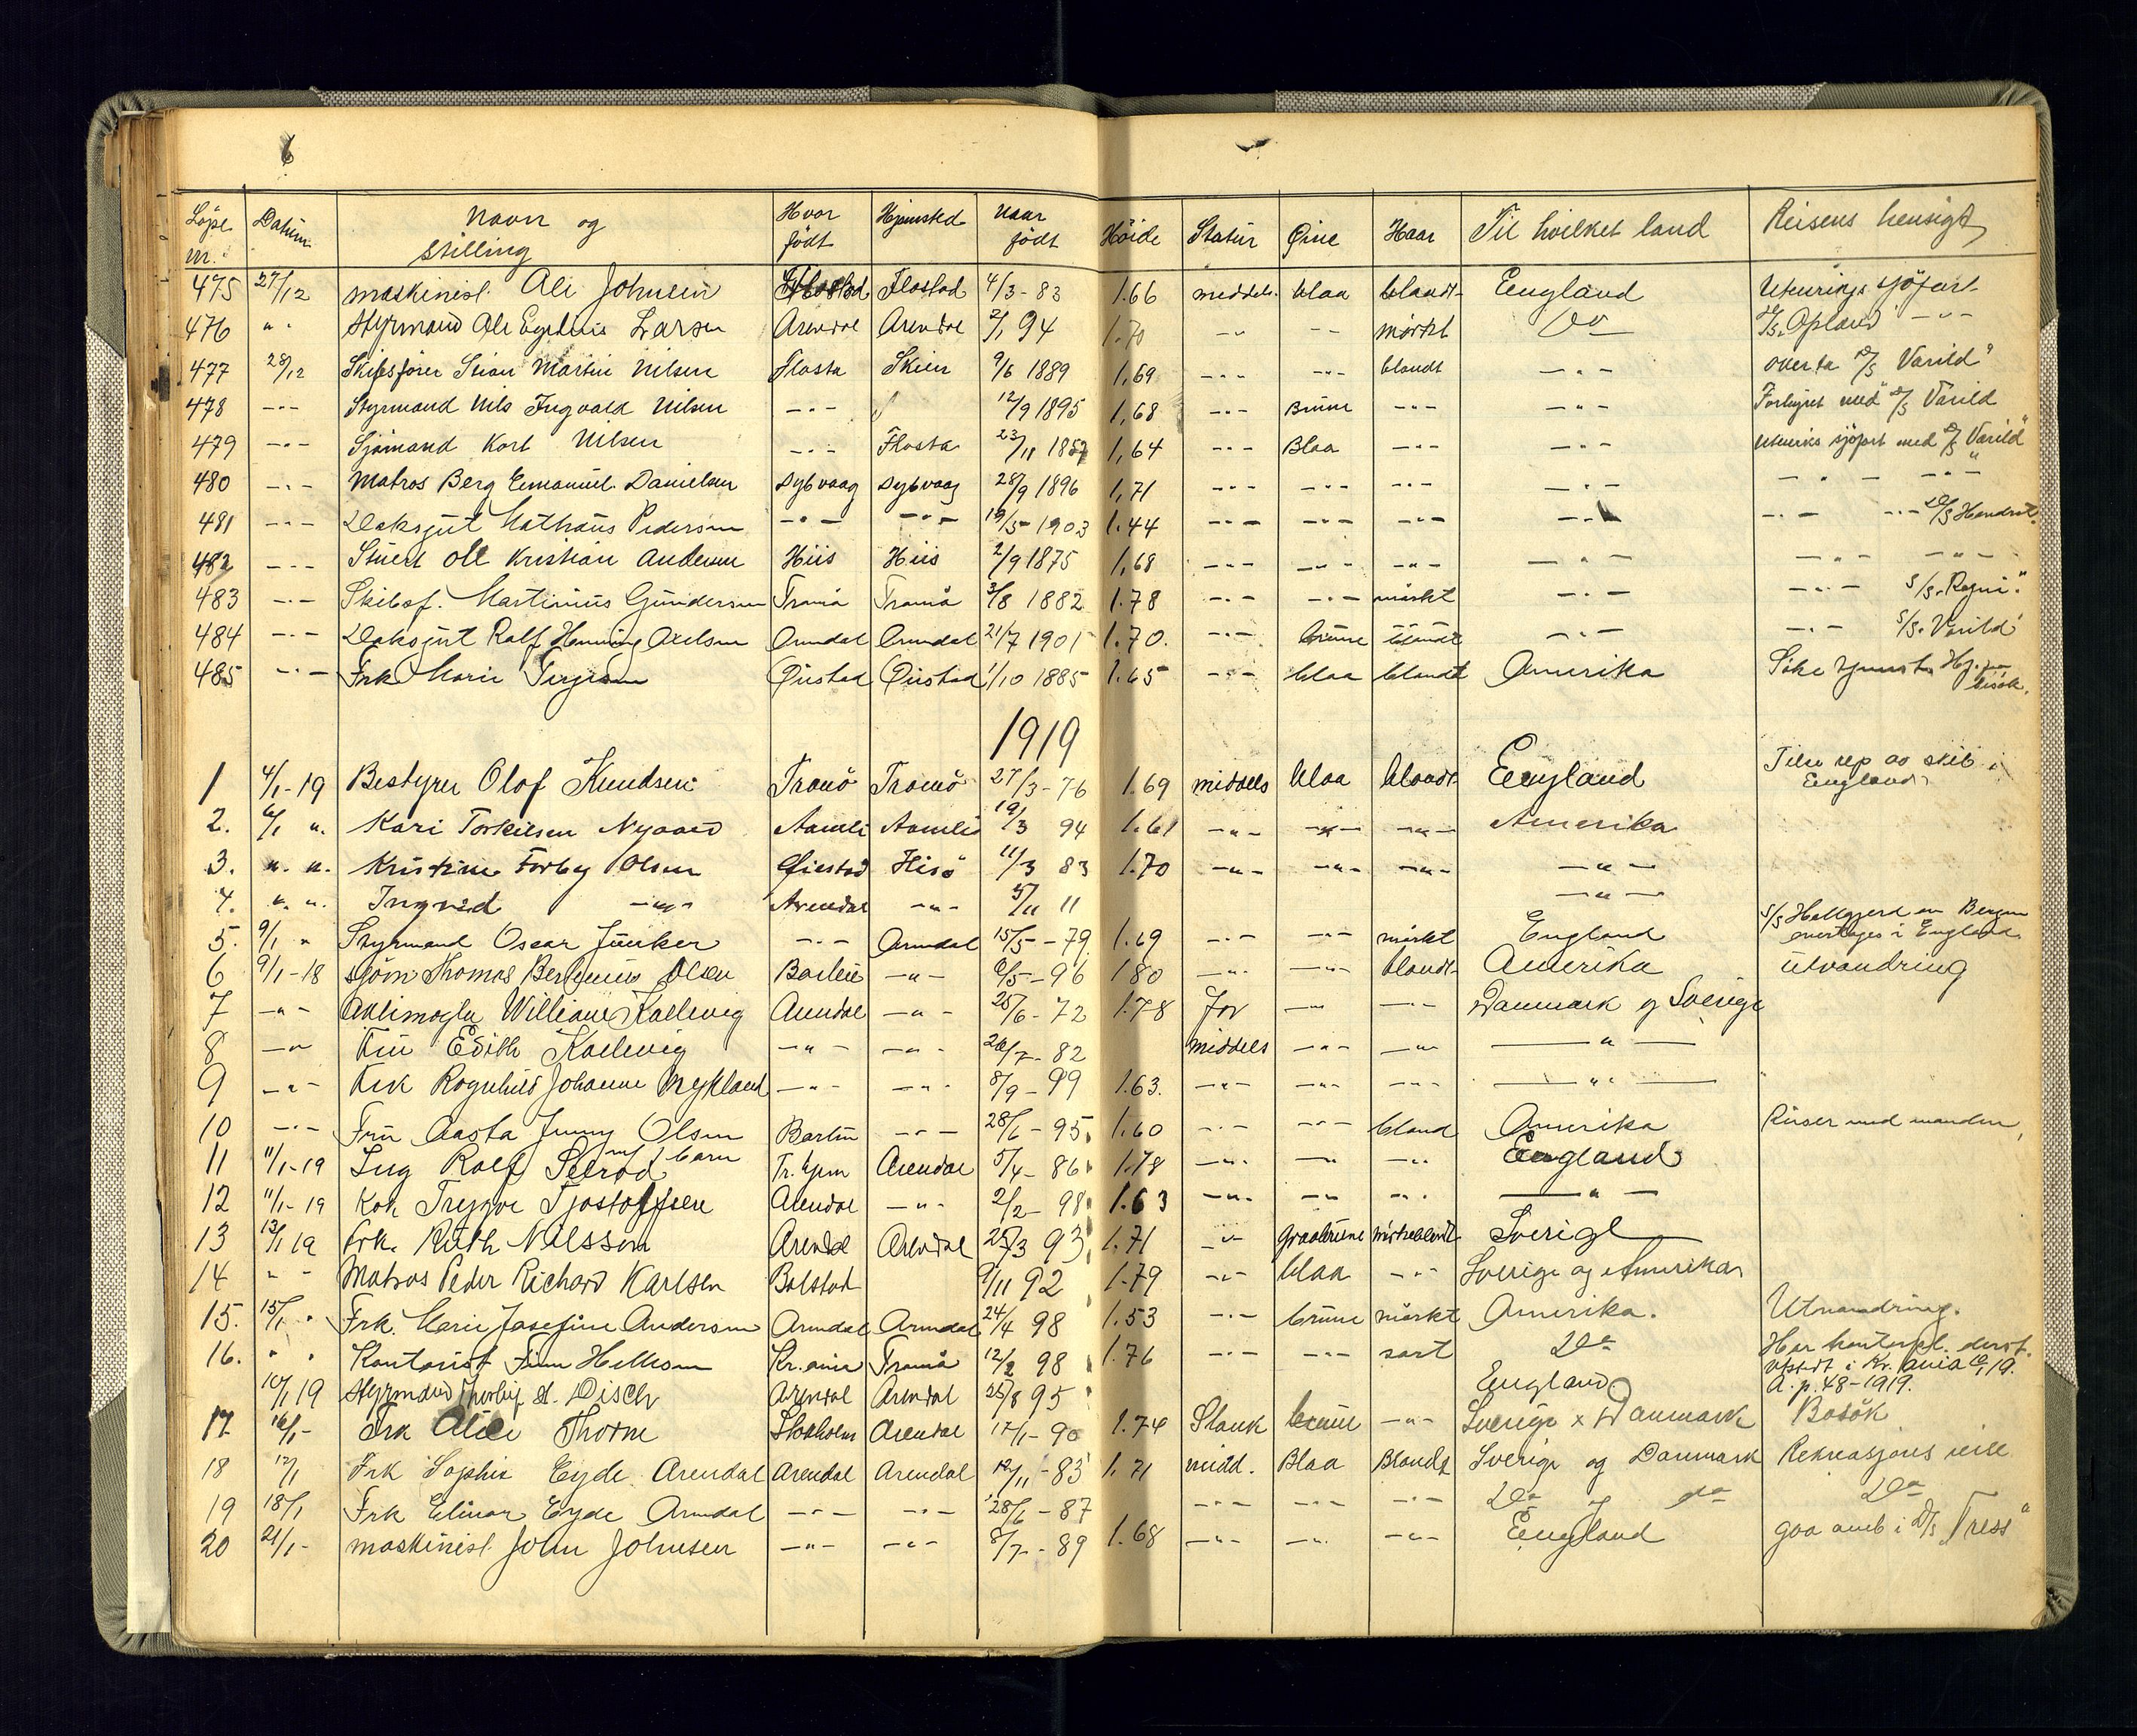 6
Løpe nr. Datum Navn og stilling Hvor født Hjemsted Naar født Høide Statur Øine Haar Til hvilket land Reisens hensigt
475 27/12 maskinist Ole Johnsen Flostad Flostad 4/3-83 1.66 middels blaa blondt England Utenrigs sjøfart
476 " " Styrmand Ole Larsen Arendal Arendal 2/1 94 1.70 -"- -"- mørkt Do D/S. Opland -"-
477 28/12 Skibsfører Martin Nilsen Flosta Skien 9/6 1889 1,69 -"- -"- blondt -"- overta D/S Varild"
478 -"- Styrmand Nils Ingvald Nilsen -"- 12/9 1895 1,68 -"- Brune -"- -"- Forhyret med D/S Varild
479 -"- Sjømand Karl Nilsen -"- Flosta 23/11 1,64 -"- Blaa -"- -"- utenriks sjøfart med D/S Varild"
480 -"- Matros Berg Emanuel Danielsen Dybvaag Dybvaag 28/9 1896 1,71 -"- -"- -"- -"- -"- -"-
481 -"- Dæksgut Mathæus Pedersen -"- -"- 1903 1.44 -"- -"- -"- -"- -"- -"- D/S
482 -"- Stuert Ole Kristian Andersen Hiis Hiis 2/9 1875 1,68 -"- -"- -"- -"- -"- -"-
483 -"- Skibsf. Martinius Gundersen Tromø Tromø 3/8 1882 1.78 -"- -"- mørkt -"- -"- S/S.
484 -"- Dæksgut Rolf Henning Axelsen Arendal Arendal 21/7 1901 1.70. -"- brune blondt -"- -"- S/S. Varild"
485 -"- Frk Marie Terjesen Øiestad Øiestad 1/10 1885 1.65 -"- blaa blondt Amerika Søke tjeneste
besøk.
1919
1 4/1-19 Bestyrer Olaf Knudsen Tromø Tromø 27/3-76 1.69 middels blaa blondt England Tilse rep av skib i
England
2. 6/1 " Kari Torkilsen Nygaard Aamli Aamli 19/3 94 1.61 -"- -"- -"- Amerika
3. " " Kristine Torbg Olsen Øiestad Hisø 11/3 83 1.70 -"- -"- -"- -"-
4. " " Ingrid -"- Arendal -"- 5/11 11 -"-
5. 9/1 " Styrmand Oscar Junker -"- Arendal 15/5-79 1.69 -"- -"- mørkt England S/S Hallgjerd av Bergen
overtages i England
6 9/1-18 sjøm Thomas Olsen -"- 6/5-96 1.80 -"- -"- blondt Amerika utvandring
7 -"- William Kallevig Arendal -"- 25/6-72 1.78 før -"- -"- Danmark og Sverige
8 -"- Fru Edith Kallevig -"- -"- 26/7-82 middels -"- -"- -"-
9 -"- Frk Ragnhild Johanne Mykland -"- -"- 8/9-99 1.63. -"- -"- -"- -"-
10 -"- Fru Aasta Jenny Olsen -"- 28/6-95 1.60 -"- -"- blond Amerika Reiser med manden
m/ 1 barn
11 11/1-19 Ing Rolf Arendal 5/4-86 1.78 -"- -"- -"- England
12 11/1-19 Kok Trygve Tjøstolfsen Arendal -"- 2/2-98 1.63 -"- -"- -"- -"-
13 13/1 19 Frk. Ruth Nilsson Arendal Arendal 25/3 93 1.71 -"- graabrune mørkeblondt Sverige
14 " " Matros Peder Richard Karlsen 9/11 92 1.79 -"- blaa -"- Sverige og Amerika
15. 15/1 " Frk. Marie Josefine Andersen Arendal Arendal 24/4 98 1.53 -"- brune mørkt Amerika. Utvandring.
16. " " Kontorist Finn Kr.ania Tromø 12/2 98 1.76 -"- -"- sort Do Har kontorpl. derst.
utstedt i Kr.ania 19.
10/1 19 Styrmand Disch Arendal Arendal 25/8 95 England A. p. 48-1919.
17 16/1- Frk Alice Thorne Stokholm Arendal 17/1-90 1.74 Slank brune -"- Sverige x Danmark Besøk
18 17/1 Frk Sophie Eyde Arendal Arendal Arendal 1.71 midd. Blaa Blondt Sverige og Danmark Rekreasjons reise
19 18/1 Frk Elinar Eyde Arendal -"- -"- 28/6-87 -"- -"- -"- Do og do Do
20 21/1- maskinist John Johnsen -"- -"- 8/7-89 1.68 -"- -"- -"- England gaa omb i D/S "Tress"